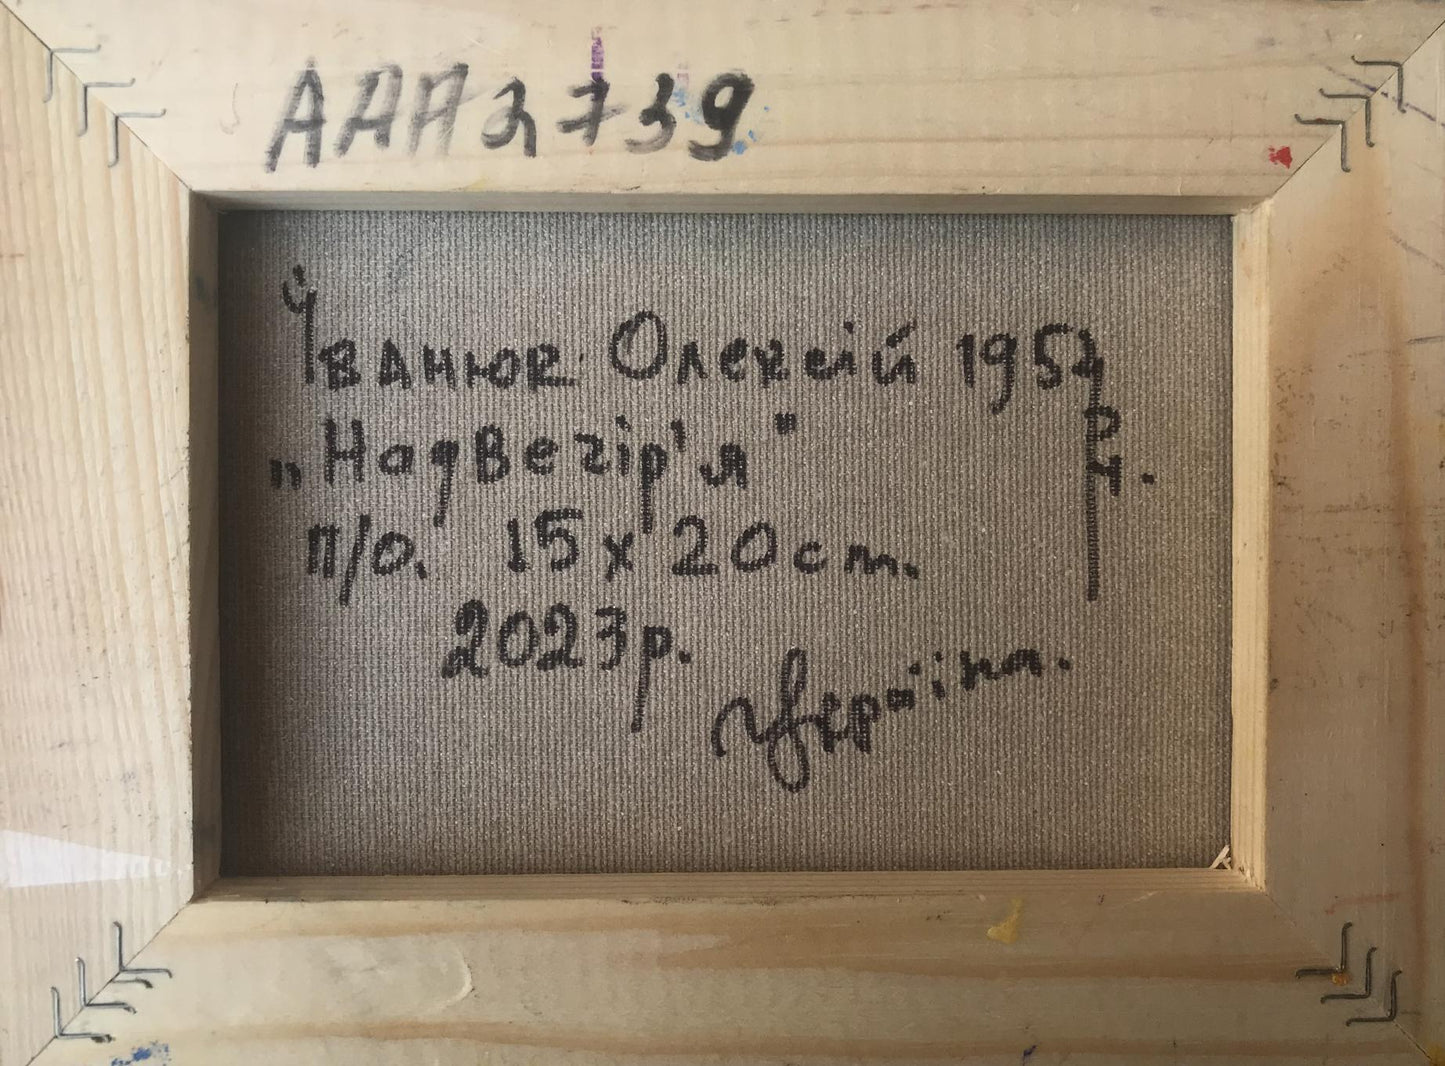 ААА2739
Іванюк Олексій 1957
р.н.
„Надвегір'я"
п/о. 15 х 20 cm.
2023р.
Україна.